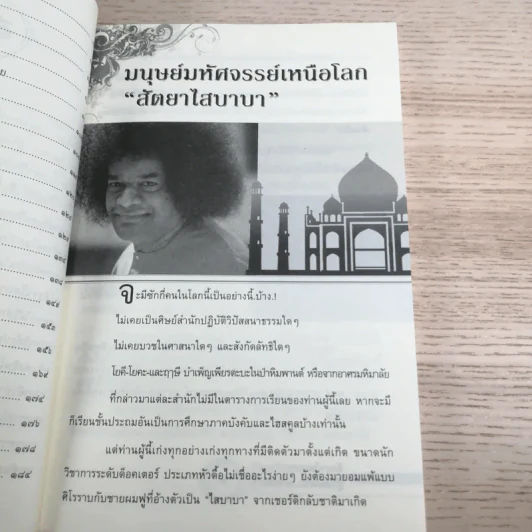 มนุษย์มหัศจรรย์เหนือโลก
“สัตยาไสบาบา”
จะมีซักกี่คนในโลกนี้เป็นอย่างนี้.บ้าง.!
ไม่เคยเป็นศิษย์สำนักปฏิบัติวิปัสสนาธรรมใดๆ
ไม่เคยบวชในศาสนาใดๆ และสังกัดลัทธิใดๆ
โยคี-โยคะ-และฤๅษี บำเพ็ญเพียรตะบะในป่าหิมพานต์ หรือจากอาศรมหิมาลัย
ที่กล่าวมาแต่ละสำนักไม่มีในตารางการเรียนของท่านผู้นี้เลย หากจะมี
ก็เรียนชั้นประถมอันเป็นการศึกษาภาคบังคับและไฮสคูลบ้างเท่านั้น
แต่ท่านผู้นี้เก่งทุกอย่างเก่งทุกทางที่มีติดตัวมาตั้งแต่เกิด ขนาดนัก
วิชาการระดับด็อคเตอร์ ประเภทหัวดื้อไม่เชื่ออะไรง่ายๆ ยังต้องมายอมแพ้แบบ
ศิโรราบกับชายผมฟูที่อ้างตัวเป็น "ไสบาบา" จากเชอร์ดิกลับชาติมาเกิด
๑๓๔
๑๔๙
๑๕๓
๑๕๖
๑๖๙
๑๗๔
๑๗๖
๑๗๘
๑๘๔